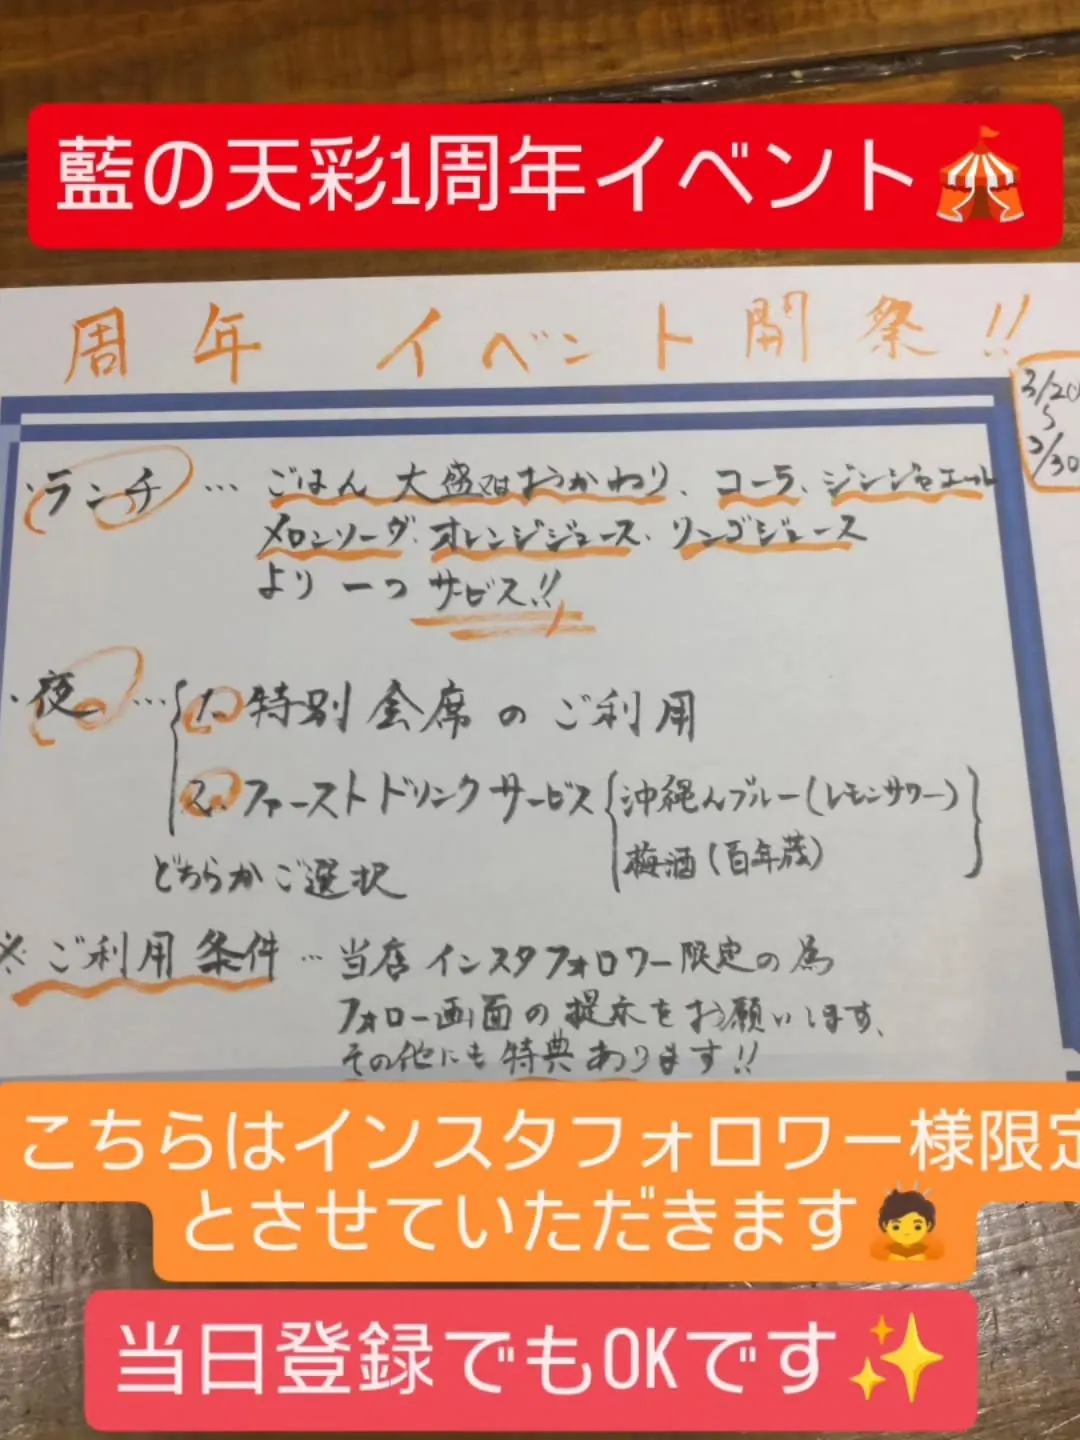 藍の天彩1周年イベント🎪
周年 イベント開祭!!
3/20
〜
3/30
・ランチ … ごはん大盛又はおかわり、コーラ、ジンジャエール
メロンソーダ、オレンジジュース、リンゴジュース
より 一つ サービス!!
・夜 … 1. 特別会席のご利用
2. ファーストドリンクサービス 沖縄んブルー(レモンサワー)
梅酒(百年蔵)
どちらかご選択
※ご利用条件 … 当店インスタフォロワー限定の為
フォロー画面の提示をお願いします、
その他にも特典あります!!
こちらはインスタフォロワー様限定
とさせていただきます🙇
当日登録でもOKです✨